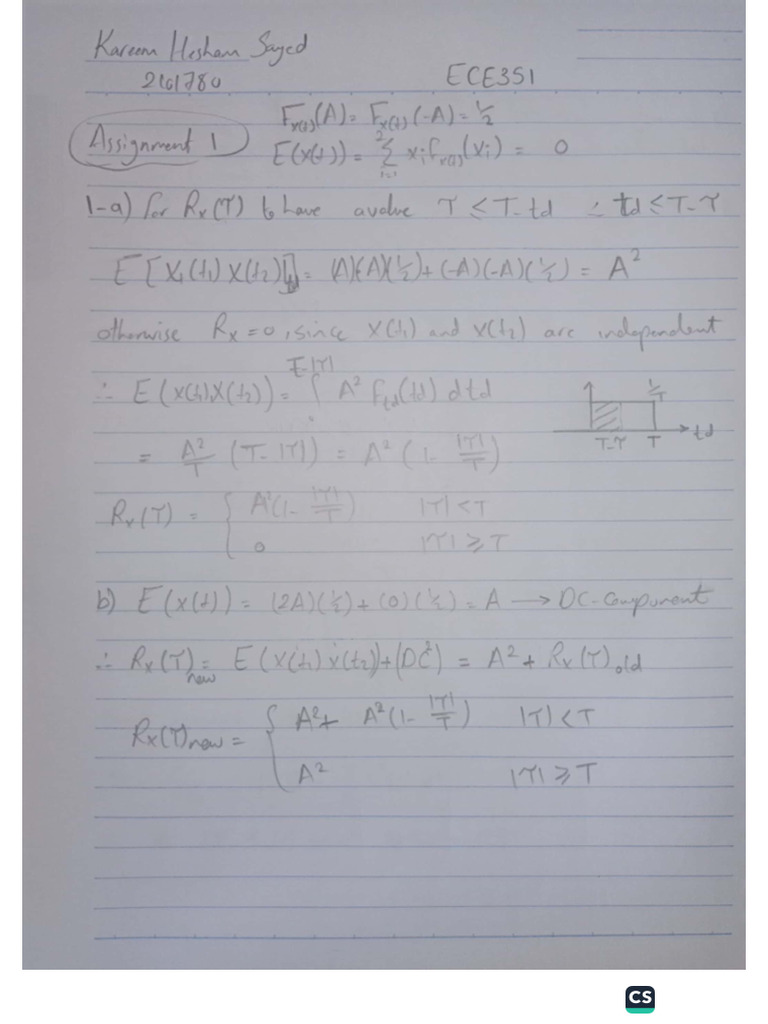 Kareem Hesham Sayed
2101780
ECE351
Assignment 1
Fx(t)(A) = Fx(t)(-A) = 1/2
E(x(t)) = 2 Σ i=1 xi fx(t)(xi) = 0
1-a) for Rx(τ) to have a value τ ≤ T-td ∴ td ≤ T-τ
E[X(t1) X(t2)] = (A)(A)(1/2) + (-A)(-A)(1/2) = A²
otherwise Rx = 0, since X(t1) and X(t2) are independent
∴ E(x(t1)X(t2)) = ∫ T-|τ| 0 A² Ftd(td) dtd
1/T
T-τ T td
= A²/T (T-|τ|) = A² (1- |τ|/T)
Rx(τ) = { A²(1- |τ|/T) |τ| < T
0 |τ| ≥ T
b) E(x(t)) = (2A)(1/2) + (0)(1/2) = A → DC-component
∴ Rx(τ)new = E(x(t1) x(t2)) + (DC²) = A² + Rx(τ)old
Rx(τ)new = { A² + A²(1- |τ|/T) |τ| < T
A² |τ| ≥ T
CS